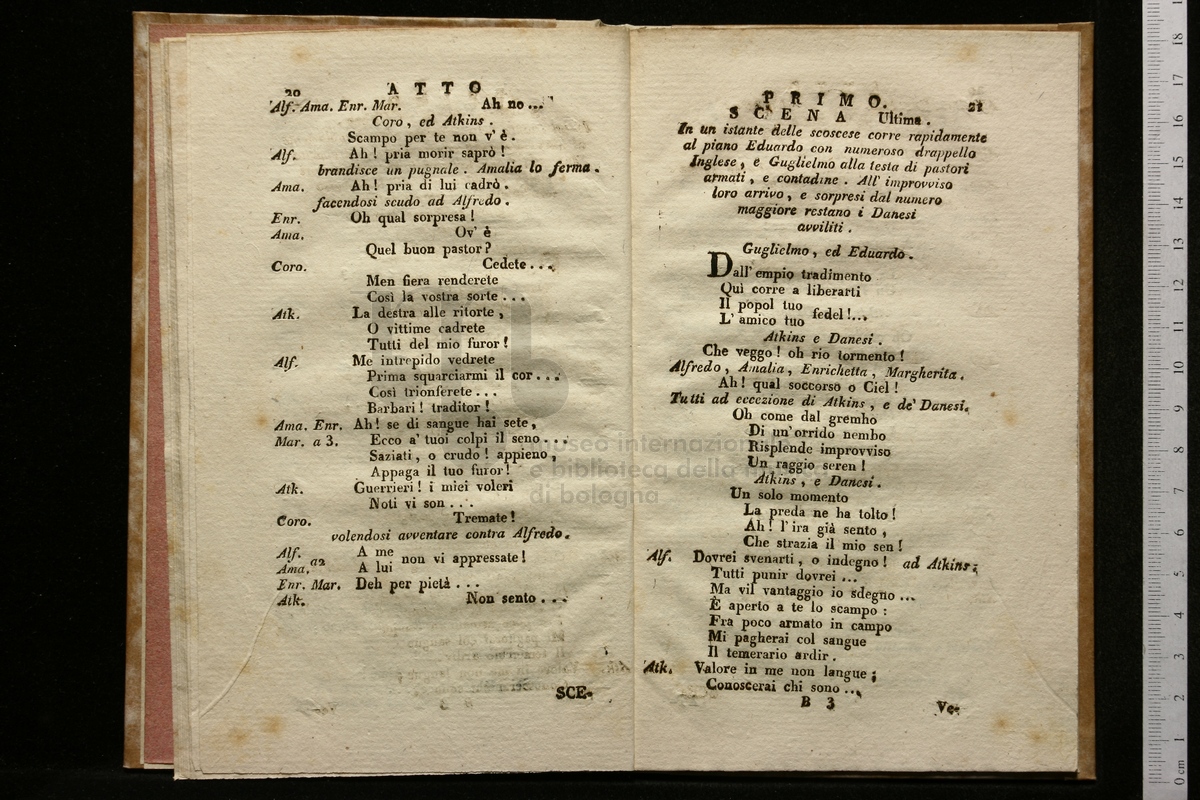 20 ATTO
Alf. Ama. Enr. Mar. Ah no ...
Coro, ed Atkins.
Scampo per te non v'è.
Alf. Ah! pria morir saprò!
brandisce un pugnale. Amalia lo ferma.
Ama. Ah! pria di lui cadrò.
facendosi scudo ad Alfredo.
Enr. Oh qual sorpresa!
Ama. Ov'è
Quel buon pastor?
Coro. Cedete...
Men fiera renderete
Così la vostra sorte...
Atk. La destra alle ritorte,
O vittime cadrete
Tutti del mio furor!
Alf. Me intrepido vedrete
Prima squarciarmi il cor...
Così trionferete...
Barbari! traditor!
Ama. Enr. Ah! se di sangue hai sete,
Mar. a 3. Ecco a' tuoi colpi il seno...
Saziati, o crudo! appieno,
Appaga il tuo furor!
Atk. Guerrieri! i miei voleri
Noti vi son...
Coro. Tremate!
volendosi avventare contra Alfredo.
Alf. A me
a2 non vi appressate!
Ama. A lui
Enr. Mar. Deh per pietà...
Atk. Non sento...
SCE-
PRIMO. 21
SCENA Ultima.
In un istante delle scoscese corre rapidamente
al piano Eduardo con numeroso drappello
Inglese, e Guglielmo alla testa di pastori
armati, e contadine. All' improvviso
loro arrivo, e sorpresi dal numero
maggiore restano i Danesi
avviliti.
Guglielmo, ed Eduardo.
Dall' empio tradimento
Qui corre a liberarti
Il popol tuo
fedel!...
L' amico tuo
Atkins e Danesi.
Che veggo! oh rio tormento!
Alfredo, Amalia, Enrichetta, Margherita.
Ah! qual soccorso o Ciel!
Tutti ad eccezione di Atkins, e de' Danesi.
Oh come dal grembo
Di un' orrido nembo
Risplende improvviso
Un raggio seren!
Atkins, e Danesi.
Un solo momento
La preda ne ha tolto!
Ah! l' ira già sento,
Che strazia il mio sen!
Alf. Dovrei svenarti, o indegno! ad Atkins.
Tutti punir dovrei ...
Ma vil vantaggio io sdegno ...
È aperto a te lo scampo:
Fra poco armato in campo
Mi pagherai col sangue
Il temerario ardir.
Atk. Valore in me non langue;
Conoscerai chi sono ...
B 3 Ve-
museo internazionale
e biblioteca della musica
di bologna
0 cm 1 2 3 4 5 6 7 8 9 10 11 12 13 14 15 16 17 18